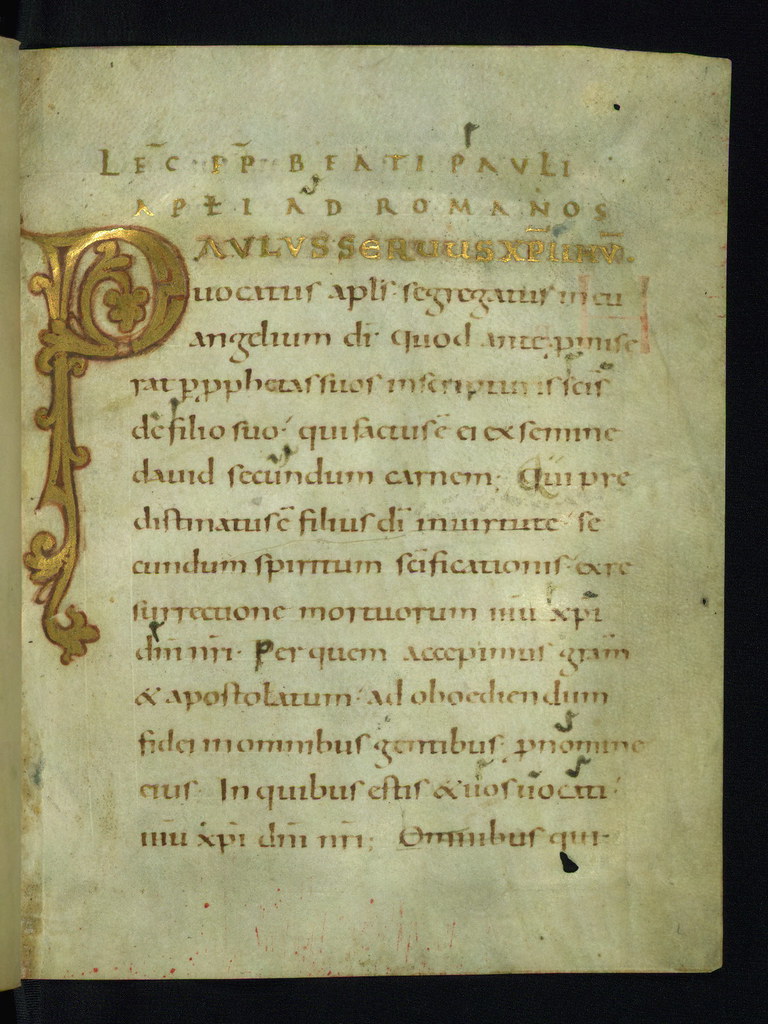 LEC̄ EP̄P BEATI PAVLI
APŁI AD ROMANOS
PAVLVS SERVUS XP̄I IHŪ.
uocatus apl̄s · segregatus in eu
angelium dī· quod ante pmise
rat p pphetas suos in scripturis scīs
de filio suo· qui factus ē ei ex semine
dauid secundum carnem; Qui pre
distinatus ē filius dī in uirtute· se
cundum spiritum scīficationis· ex re
surrectione mortuorum ihū xpī
dn̄i nr̄i· Per quem accepimus gr̄am
& apostolatum· ad oboediendum
fidei in omnibus gentibus; p nomine
eius· In quibus estis & uos uocati·
ihū xpī dn̄i nr̄i; Omnibus qui